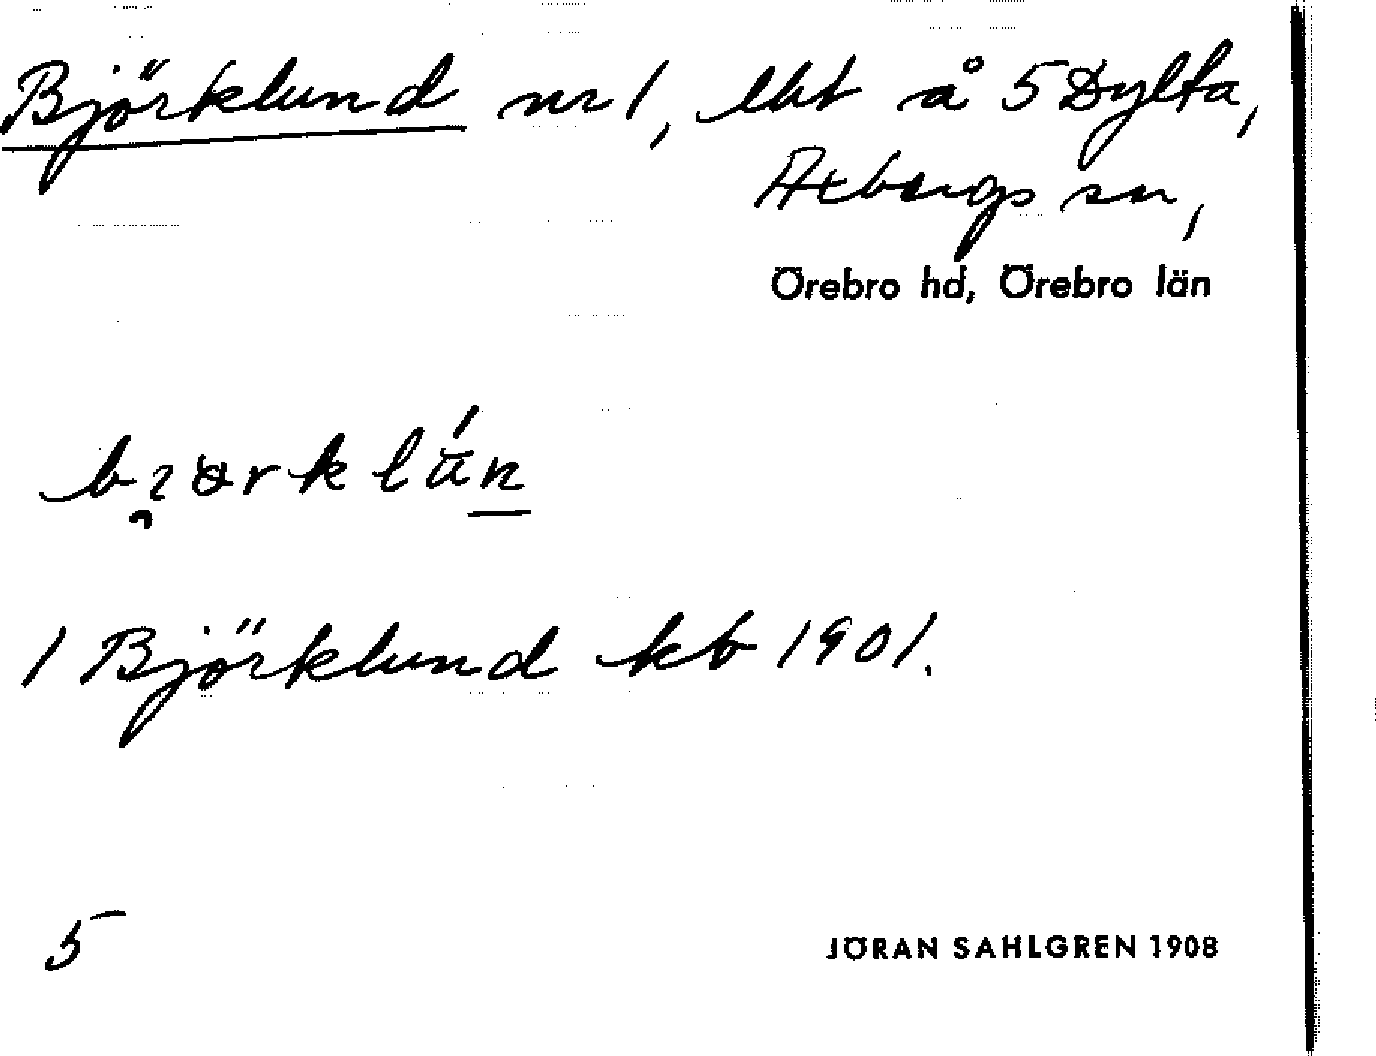 Björklund nr 1, lht å 5 Dylta,
Axbergs sn,
Örebro hd, Örebro län
1 Björklund kb 1901.
5
JÖRAN SAHLGREN 1908